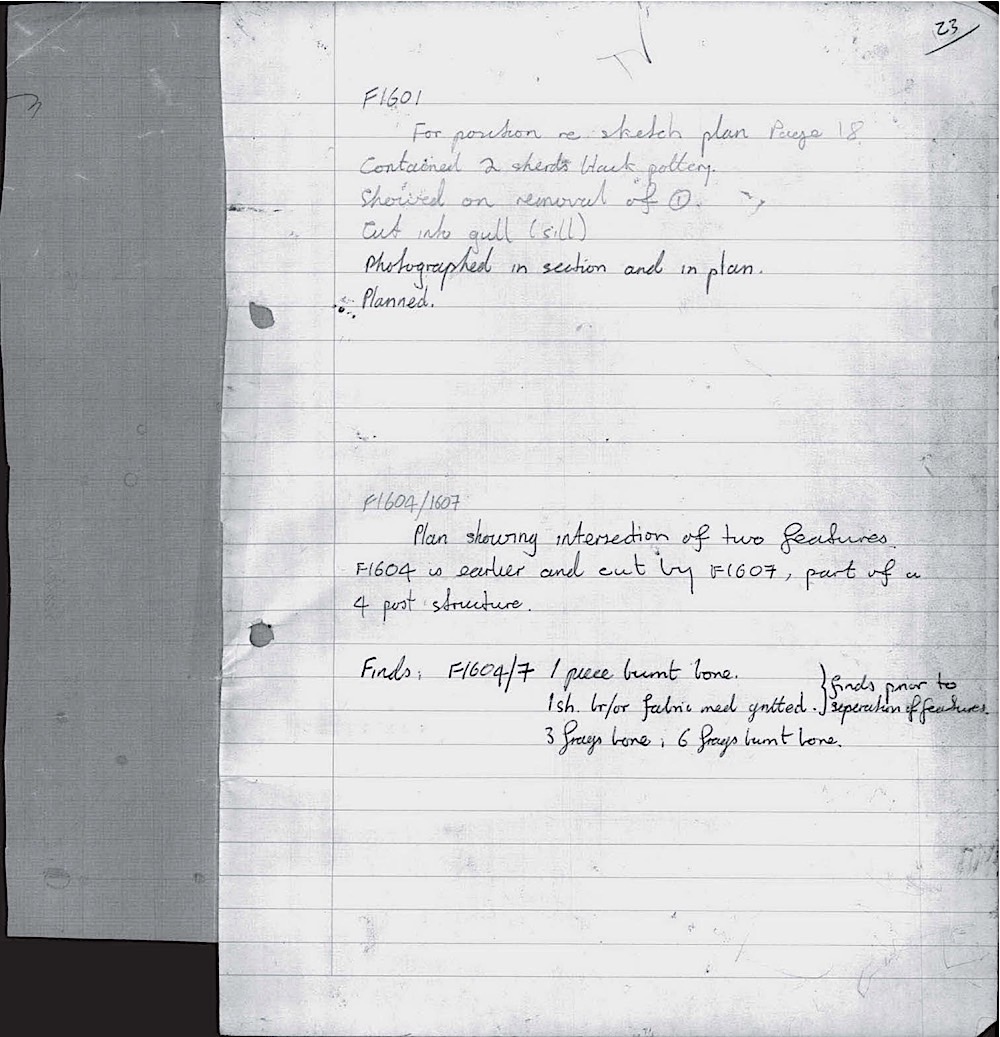 23
F1601
For position re sketch plan Page 18
Contained 2 sherds black pottery.
Showed on removal of ①.
Cut into gull (sill)
Photographed in section and in plan.
Planned.
F1604/1607
Plan showing intersection of two features.
F1604 is earlier and cut by F1607, part of a
4 post structure.
Finds; F1604/7 1 piece burnt bone.
1 sh. br/or fabric med gritted. } finds prior to
seperation of features.
3 frags bone; 6 frags burnt bone.